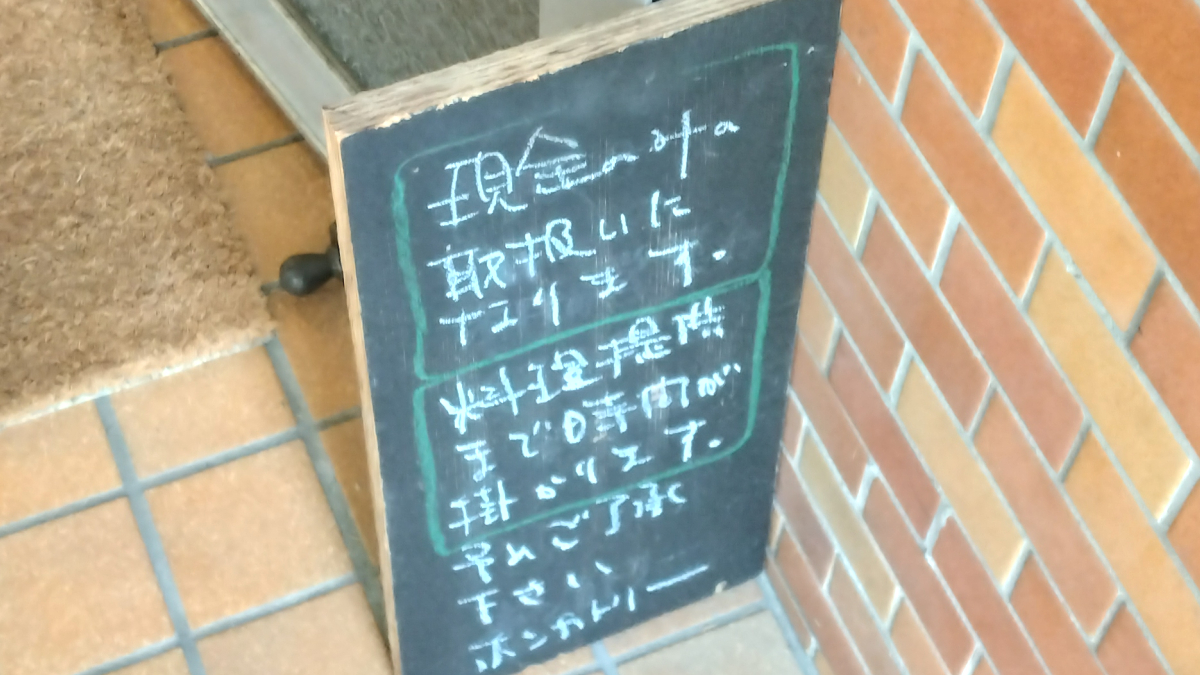 現金のみの
取扱いに
なります。
料理提供
まで時間が
掛かります。
予めご了承
下さい
ボンカトリー